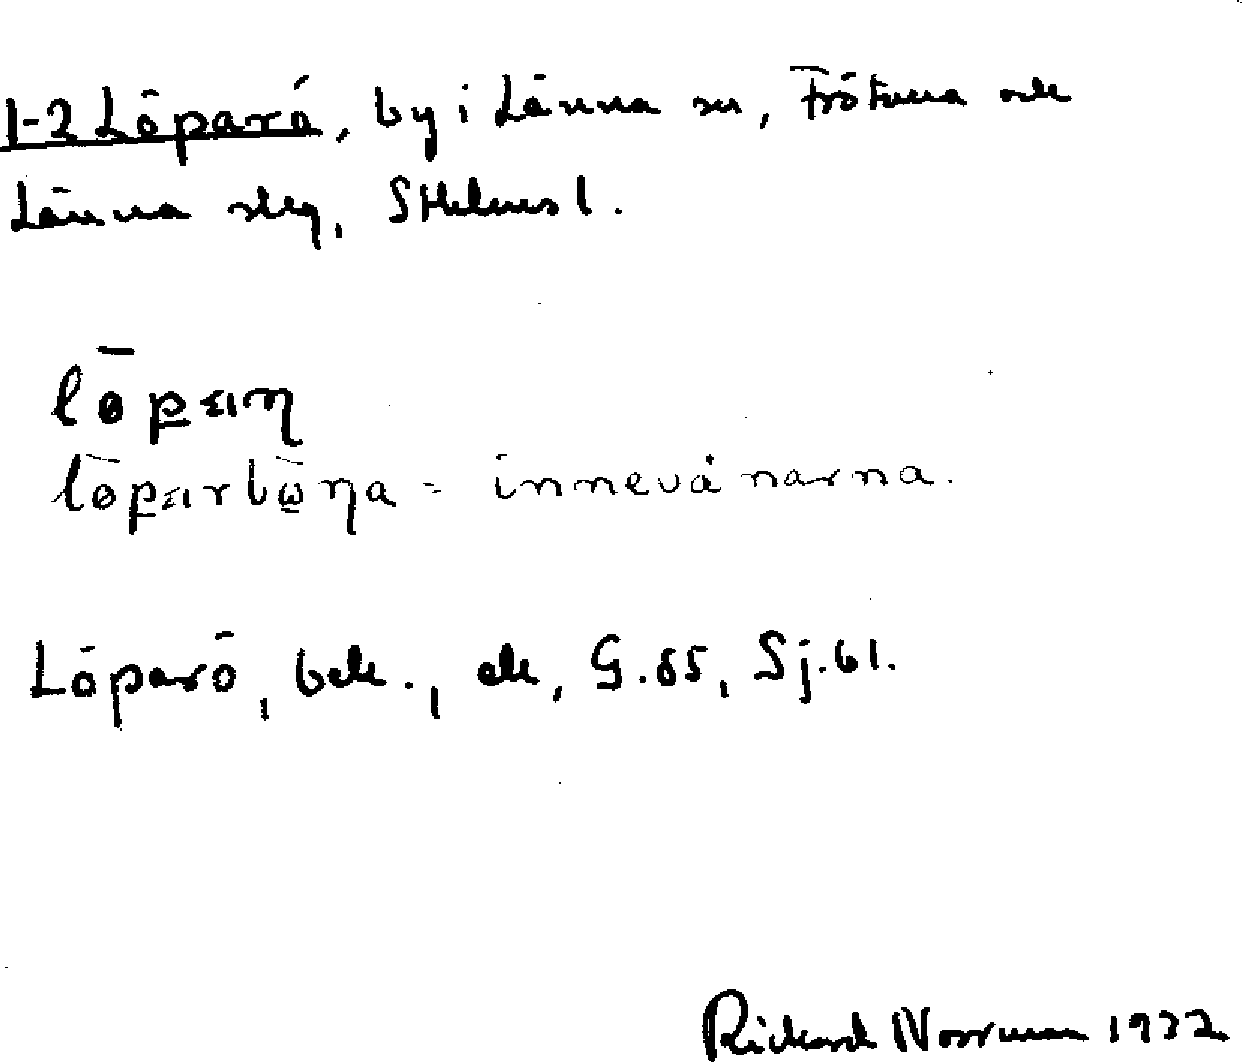 1-2 Löparö, by i Länna sn, Frötuna och
Länna slg, Sthlms l.
löpaη
löparböηa = innevånarna.
Löparö, beb., ek, G.65, Sj.61.
Rickard Norrman 1932